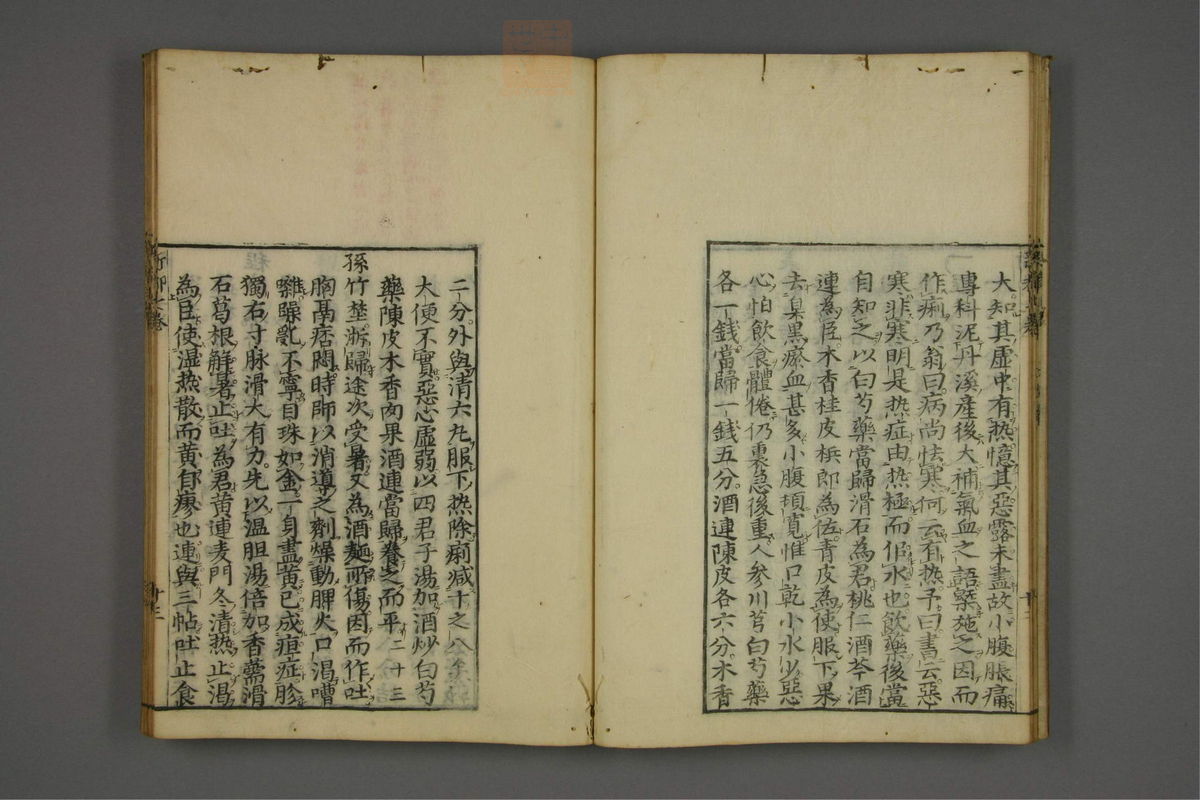 大知其虛中有热憶其惡露未盡故小腹脹痛
專科泥丹溪產後大補氣血之語槩施之因而
作痢乃翁曰病尚怯寒何云有热予曰書云惡
寒非寒明是热症由热極而佀水也飲藥後當
自知之以白芍藥當歸滑石為君桃仁酒芩酒
連為臣木香桂皮梹郎為佐青皮為使服下果
去臭黑瘀血甚多小腹頓寬惟口乾小水少惡
心怕飲食體倦仍裏急後重人參川芎白芍藥
各一錢當歸一錢五分酒連陳皮各六分木香
二分外與清六丸服下热除痢減十之八
大便不實惡心虛弱以四君子湯加酒炒白芍
藥陳皮木香肉果酒連當歸養之而平二十三
孫竹埜歸途次受暑又為酒麵所傷因而作吐
胸鬲痞悶時師以消導之劑燥動脾火口渴嘈
雜躁亂不寧目珠如金一身盡黃已成疸症胗
獨右寸脉滑大有力先以温胆湯倍加香薷滑
石葛根解暑止吐為君黃連麦門冬清热止渴
為臣使湿热散而黃自瘳也連與三帖吐止食